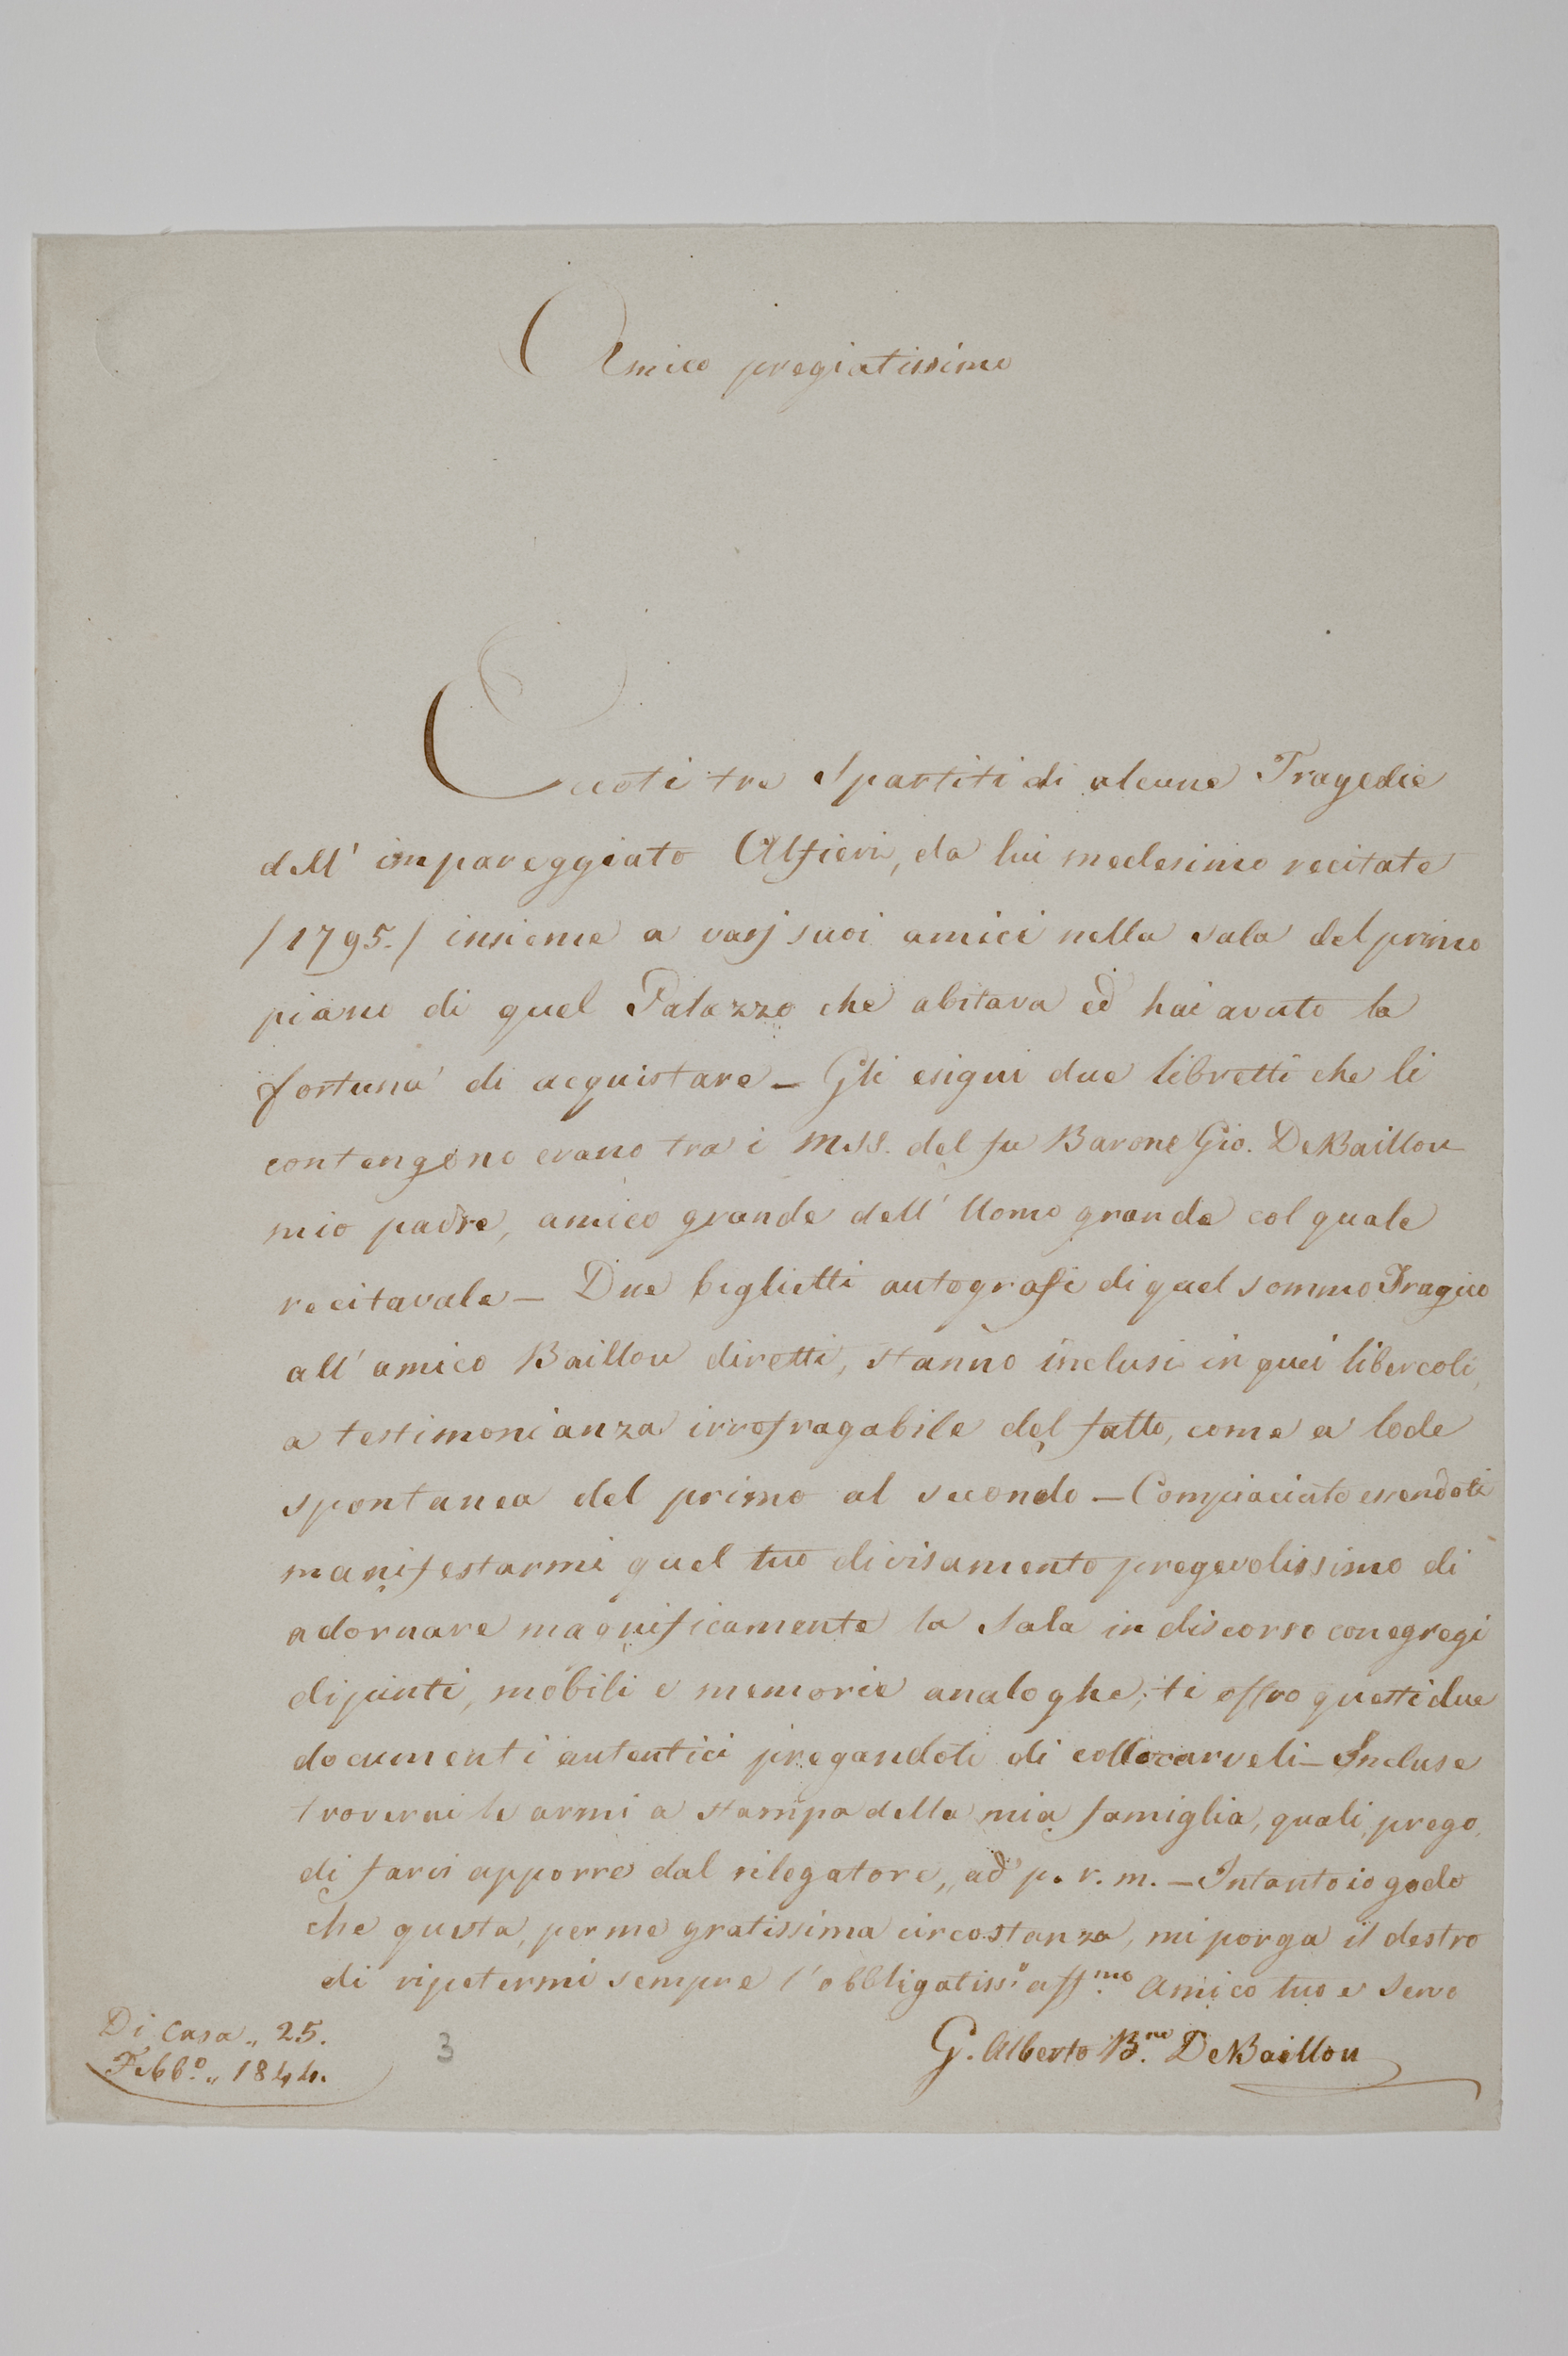 Amico pregiatissimo
Eccoti tre Spartiti di alcune Tragedie
dell' impareggiato Alfieri, da lui medesimo recitate
/1795./ insieme a varj suoi amici nella sala del primo
piano di quel Palazzo che abitava ed hai avuto la
fortuna di acquistare_ Gli esigui due libretti che li
contengono erano tra i MSS. del fu Barone Gio. DeBaillou
mio padre, amico grande dell' Uomo grande col quale
recitavale_ Due biglietti autografi di quel sommo Tragico
all' amico Baillou diretti, stanno inclusi in quei libercoli,
a testimonianza irrefragabile del fatto, come a lode
spontanea del primo al secondo_ Compiaciuto essendoti
manifestarmi quel tuo divisamento pregevolissimo di
adornare magnificamente la Sala in discorso con egregi
dipinti, mobili e memorie analoghe; ti offro questi due
documenti autentici pregandoti di collocarveli_ Incluse
troverai le armi a stampa della mia famiglia, quali prego
di farvi apporre dal rilegatore, ad p. r. m. _ Intanto io godo
che questa, per me gratissima circostanza, mi porga il destro
di ripetermi sempre l'obbligatiss.o aff.mo Amico tuo e Servo
G. Alberto B.ne DeBaillou
Di Casa „ 25.
Febb.o „ 1844.
3